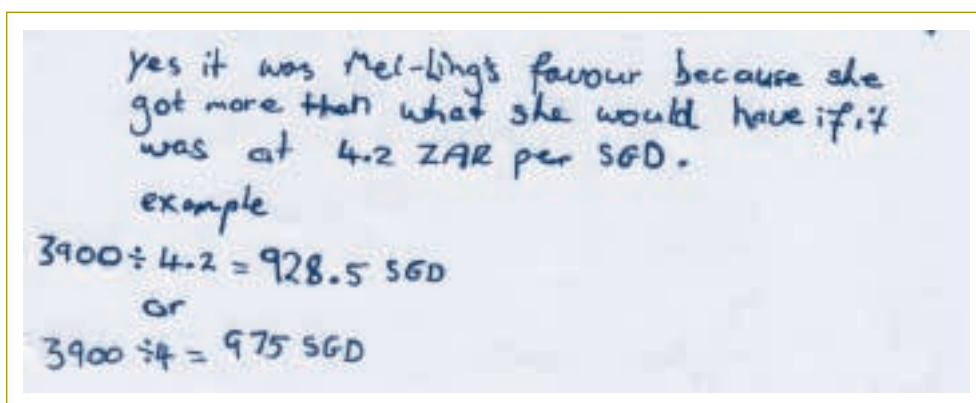 yes it was Mei-Ling's favour because she
got more than what she would have if it
was at 4.2 ZAR per SGD.
example
3900 ÷ 4.2 = 928.5 SGD
or
3900 ÷4 = 975 SGD